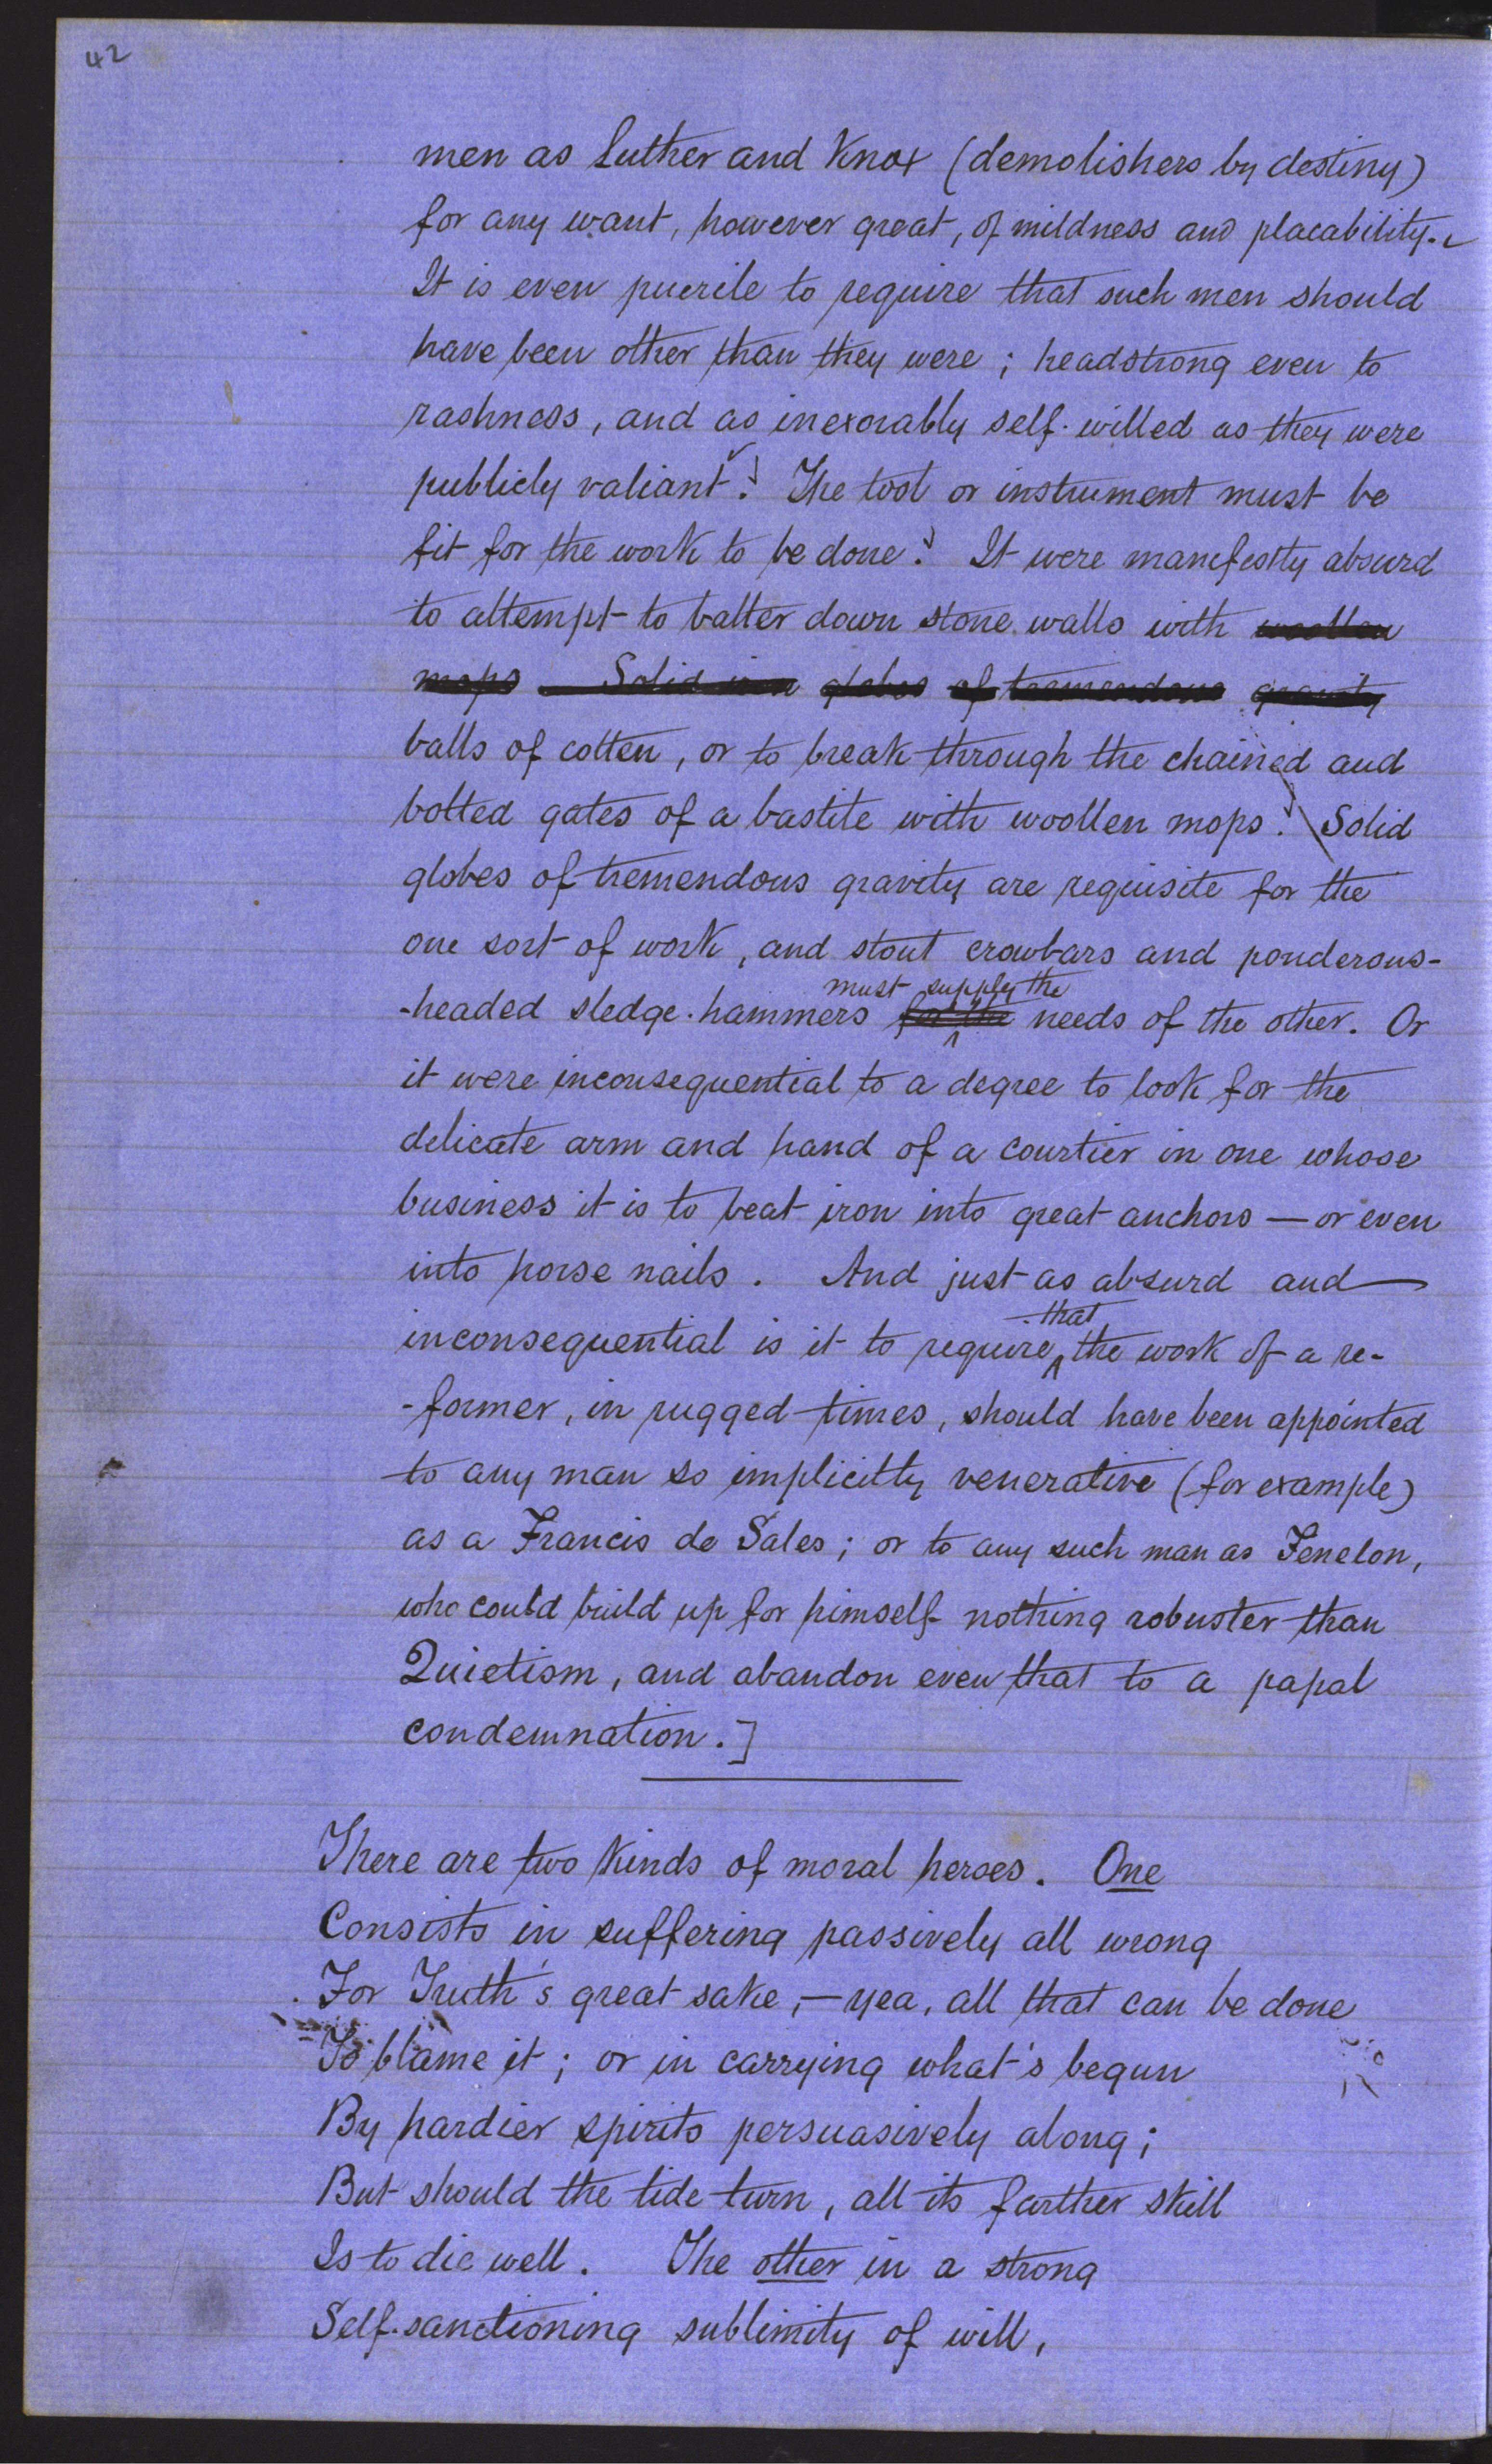 42
men as Luther and Knox (demolishers by destiny)
for any want, however great, of mildness and placability.
It is even puerile to require that such men should
have been other than they were; headstrong even to
rashness, and as inexorably self-willed as they were
publicly valiant! The tool or instrument must be
fit for the work to be done! It were manifestly absurd
to attempt to batter down stone walls with woollen
mops. Solid iron globes of tremendous gravity
balls of cotten, or to break through the chained and
bolted gates of a bastile with woollen mops! Solid
globes of tremendous gravity are requisite for the
one sort of work, and stout crowbars and ponderous-
must supply the
-headed sledge-hammers for the needs of the other. Or
it were inconsequential to a degree to look for the
delicate arm and hand of a courtier in one whose
business it is to beat iron into great anchors — or even
into horse nails. And just as absurd and
that
inconsequential is it to require the work of a re-
-former, in rugged times, should have been appointed
to any man so implicitly venerative (for example)
as a Francis de Sales; or to any such man as Fenelon,
who could build up for himself nothing robuster than
Quietism, and abandon even that to a papal
condemnation.]
There are two kinds of moral heroes. One
Consists in suffering passively all wrong
For Truth's great sake, — yea, all that can be done
To blame it; or in carrying what's begun
By hardier spirits persuasively along;
But should the tide turn, all its farther skill
Is to die well. The other in a strong
Self-sanctioning sublimity of will,